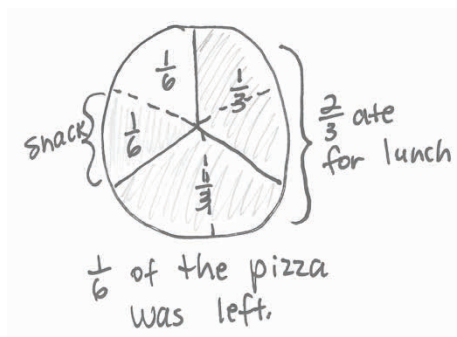 1/6
1/3
snack
1/6
1/3
2/3 ate
for lunch
1/6 of the pizza
was left.